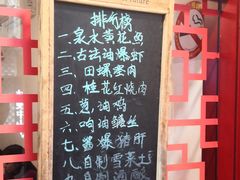 排行榜
一泉水黄花鱼
二古法油爆虾
三田螺塞肉
四桂花红烧肉
五葱油鸡
六响油鳝丝
七酱爆猪肝
八自制雪菜土
九自制